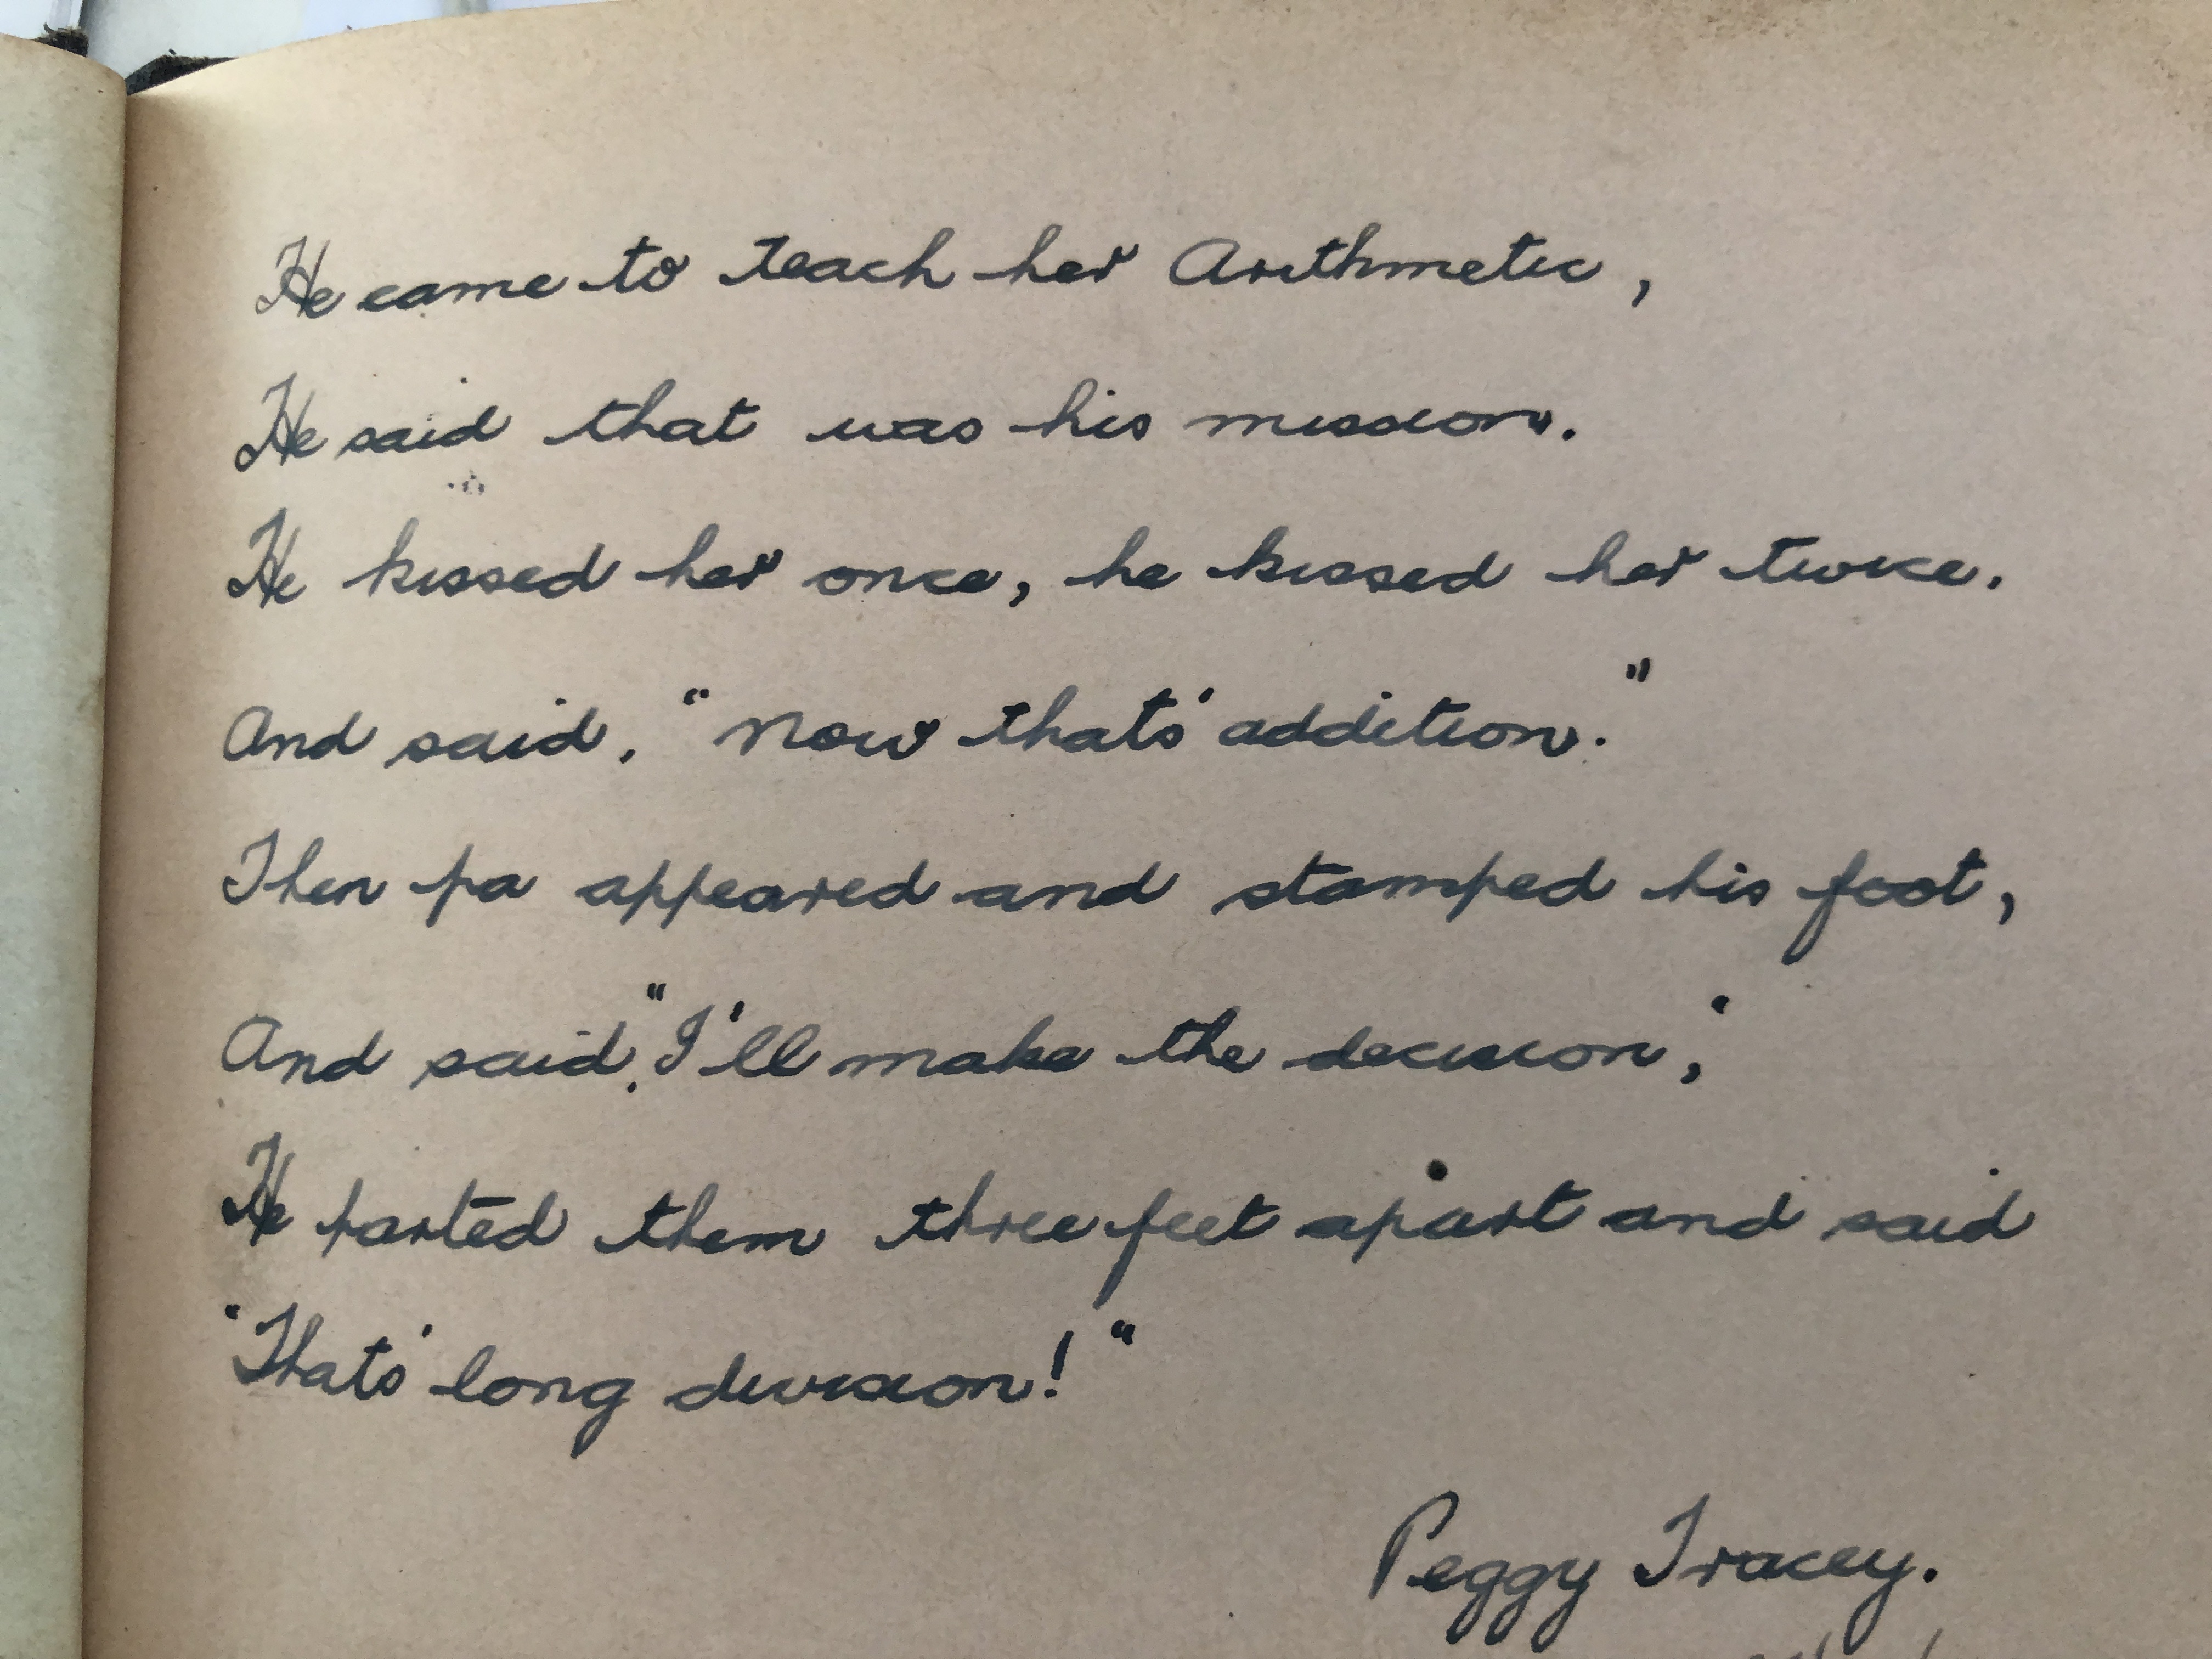 He came to teach her Arithmetic,
He said that was his mission.
He kissed her once, he kissed her twice.
And said, "Now thats' addition."
Then pa appeared and stamped his foot,
And said, "I'll make the decision,"
He parted them three feet apart and said
"Thats' long division!"
Peggy Tracey.